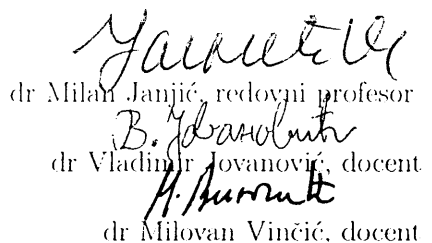 dr Milan Janjić, redovni profesor
В. Јовановић
dr Vladimir Jovanović, docent
dr Milovan Vinčić, docent